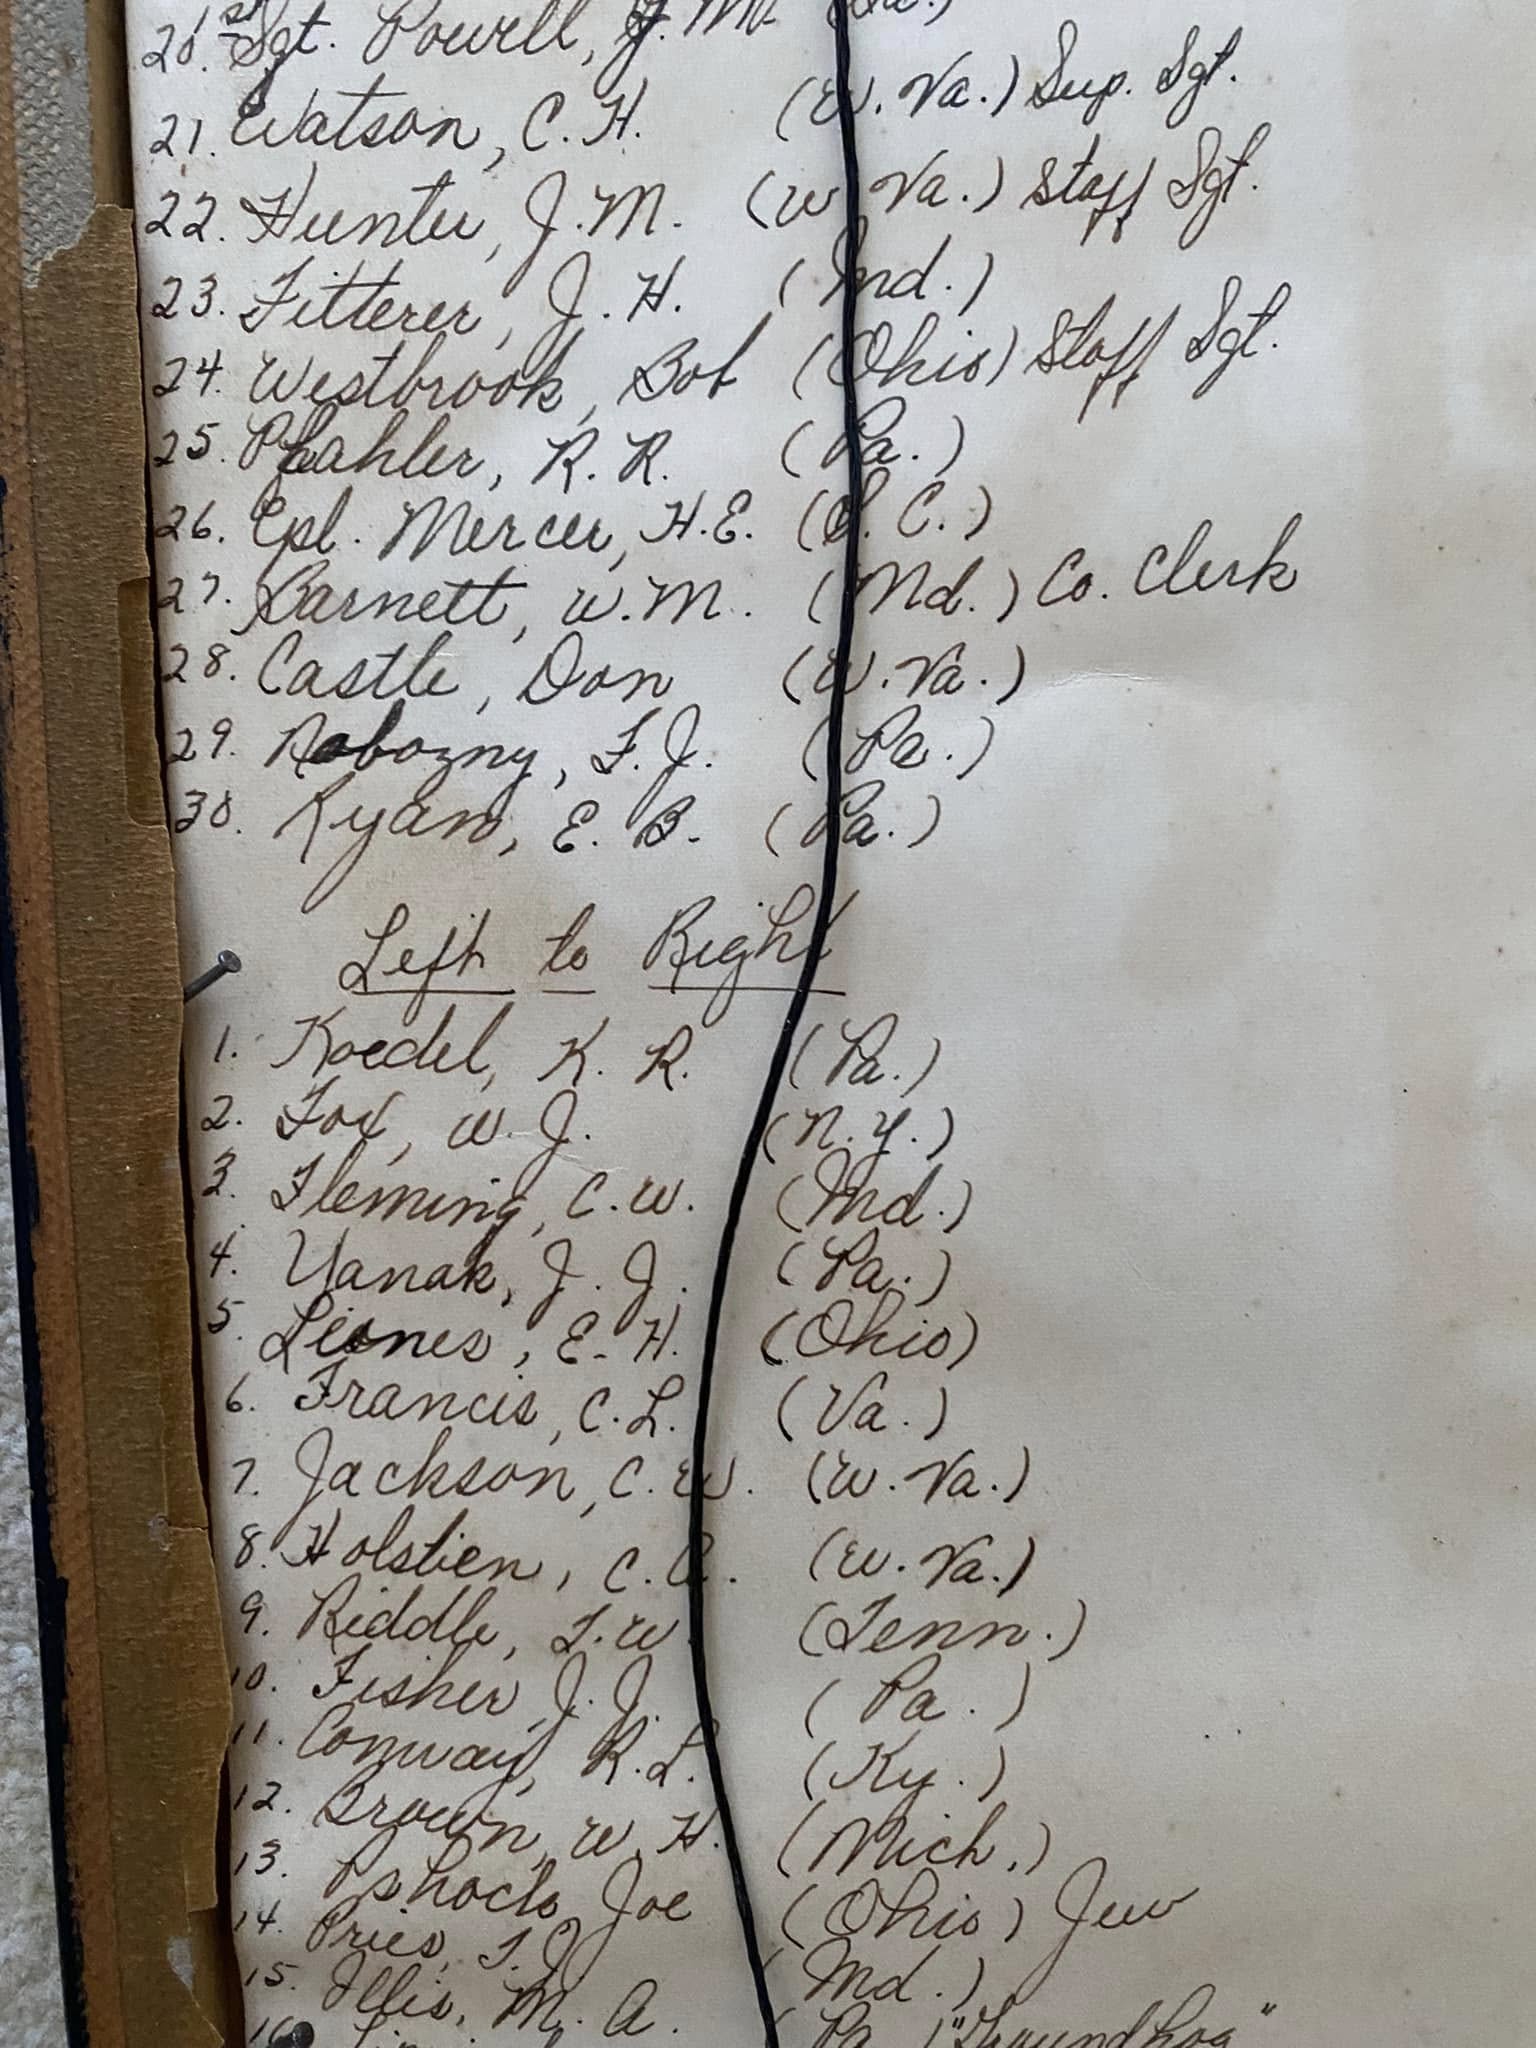 20. 1st Sgt. Powell, J. M.
21. Watson, C. H. (W. Va.) Sup. Sgt.
22. Hunter, J. M. (W Va.) Staff Sgt.
23. Fitterer, J. H. (Md.)
24. Westbrook, Bob (Ohio) Staff Sgt.
25. Pfahler, R. R. (Pa.)
26. Cpl. Mercer, H. E. (S. C.)
27. Barnett, W. M. (Md.) Co. Clerk
28. Castle, Don (W. Va.)
29. Nabozny, F. J. (Pa.)
30. Ryan, E. B. (Pa.)
Left to Right
1. Koedel, K. R. (Pa.)
2. Fox, W. J. (N. Y.)
3. Fleming, C. W. (Md.)
4. Yanak, J. J. (Pa.)
5. Leones, E. H. (Ohio)
6. Francis, C. L. (Va.)
7. Jackson, C. W. (W. Va.)
8. Holstien, C. A. (W. Va.)
9. Riddle, T. W (Tenn.)
10. Fisher, J. J. (Pa.)
11. Conway, R. L. (Ky.)
12. Brown, W. H. (Mich.)
13. Joe (Ohio) Jew
14. Pries, T. J (Md.)
15. Illis, M. A. (Pa.) "Groundhog"
16.